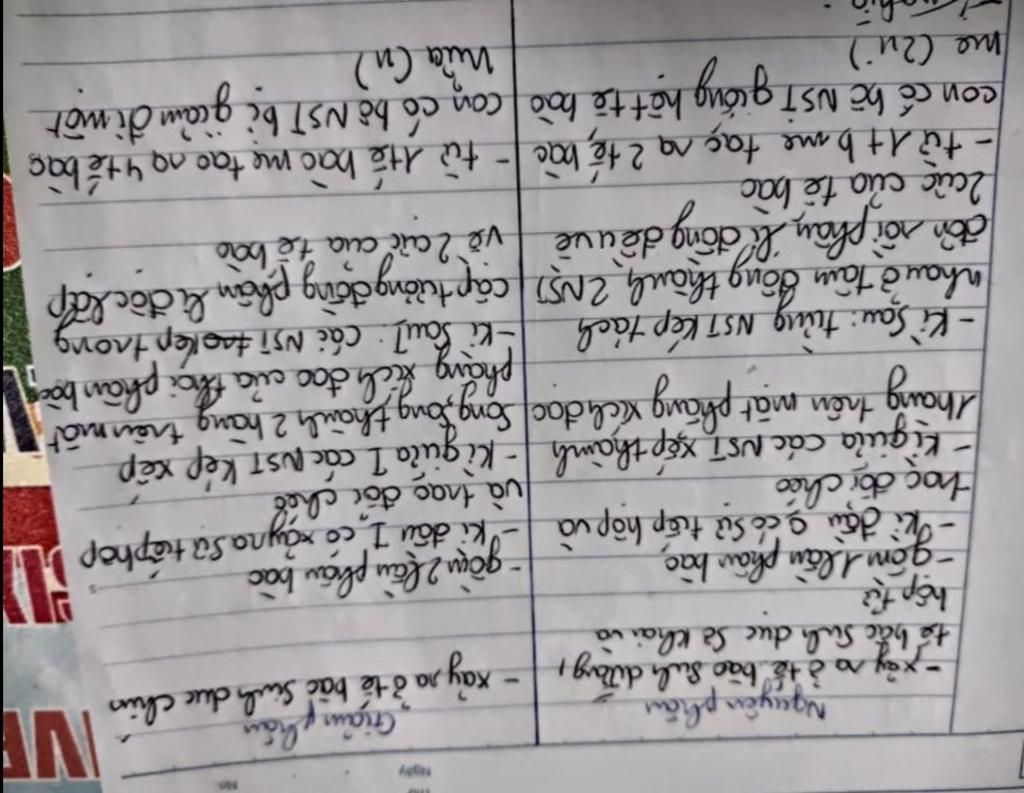 Ngày
No.
Nguyên phân
Giảm phân
- xảy ra ở tế bào sinh dưỡng,
tế bào sinh dục sơ khai và
hợp tử
- gồm 1 lần phân bào
- kì đầu có sự tiếp hợp và
trao đổi chéo
- kì giữa các NST xếp thành
1 hàng trên mặt phẳng xích đạo
- kì sau: từng NST kép tách
nhau ở tâm động thành 2 NST
đơn rồi phân li đồng đều về
2 cực của tế bào
- từ 1 tb mẹ tạo ra 2 tế bào
con có bộ NST giống hệt tế bào
mẹ (2n)
- xảy ra ở tế bào sinh dục chín
- gồm 2 lần phân bào
- kì đầu I có xảy ra sự tiếp hợp
và trao đổi chéo
- kì giữa I các NST kép xếp
song song thành 2 hàng trên mặt
phẳng xích đạo của thoi phân bào
- kì sau I: các NST kép trong
cặp tương đồng phân li độc lập
về 2 cực của tế bào
- từ 1 tế bào mẹ tạo ra 4 tế bào
con có bộ NST bị giảm đi một
nửa (n)